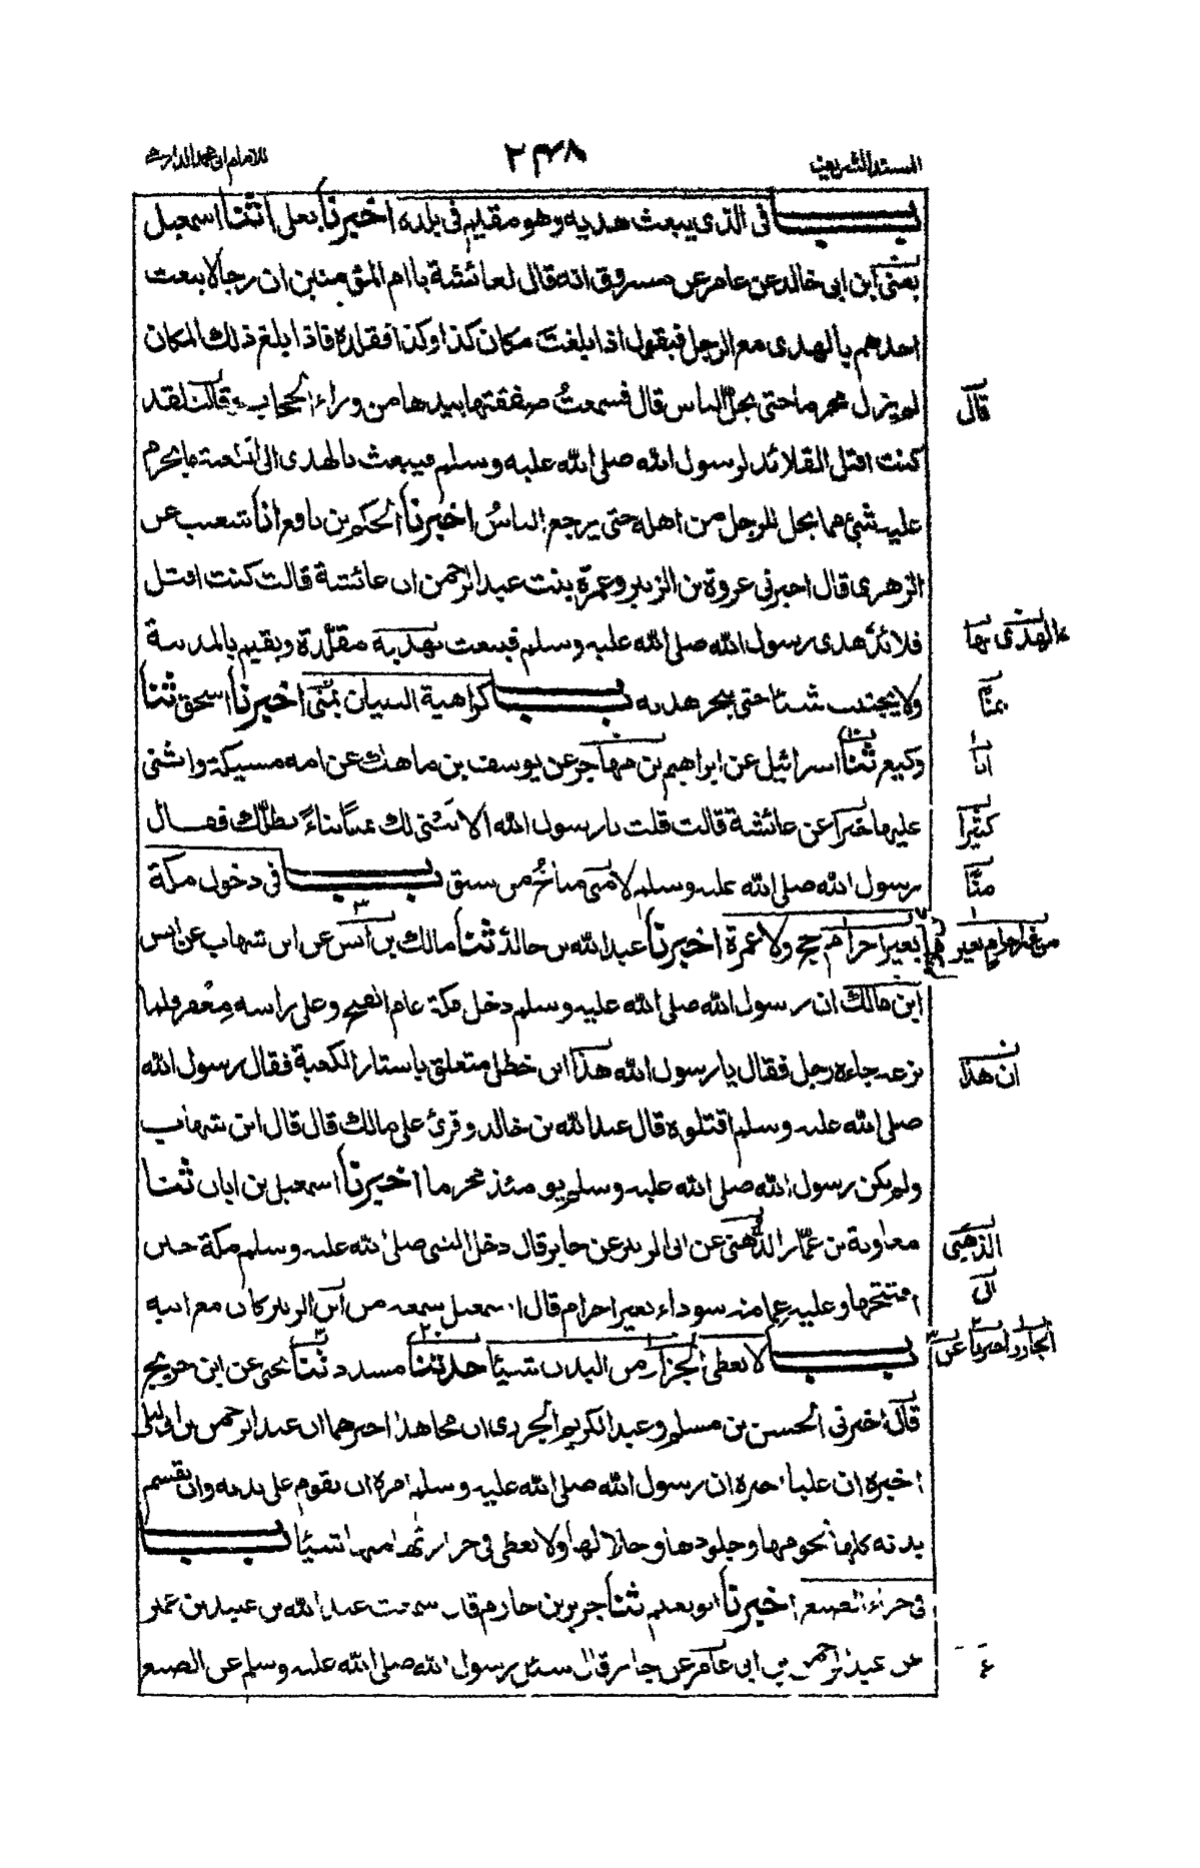 المسند الشريف
٢٤٨
للامام ابى محمد الدارمى
باب فى الذى يبعث هديه وهو مقيم فى بلده اخبرنا يعلى اثنا اسمعيل
يعنى ابن ابى خالد عن عامر عن مسروق انه قال لعائشة ياام المؤمنين ان رجالا يبعث
احدهم بالهدى مع الرجل فيقول اذا بلغت مكان كذا وكذا فقلده فاذا بلغ ذلك المكان
لم يزل محرما حتى يحل الناس قال فسمعت صفقتها بيدها من وراء الحجاب وقالت لقد
قال
كنت افتل القلائد لرسول الله صلى الله عليه وسلم فيبعث بالهدى الى الكعبة ما يحرم
عليه شئ مما يحل للرجل من اهله حتى يرجع الناس اخبرنا الحكم بن نافع انا شعيب عن
الزهرى قال اخبرنى عروة بن الزبير وعمرة بنت عبد الرحمن ان عائشة قالت كنت افتل
قلائد هدى رسول الله صلى الله عليه وسلم فيبعث بهديه مقلدة ويقيم بالمدينة
الهدى بها
ولا يجتنب شيئا حتى ينحر هديه باب كراهية البنيان بمنى اخبرنا اسحق ثنا
بمنًا
وكيع ثنا اسرائيل عن ابراهيم بن مهاجر عن يوسف بن ماهك عن امه مسيكة واثنى
انا
عليها خيرا عن عائشة قالت قلت يا رسول الله الا نبنى لك بمنا بناءً يظلك فقال
كثيرا
رسول الله صلى الله عليه وسلم لا منى مناخ من سبق باب فى دخول مكة
منًا
بغير احرام حج ولا عمرة اخبرنا عبد الله بن خالد ثنا مالك بن انس عن ابن شهاب عن انس
من غير احرام بغير
ابن مالك ان رسول الله صلى الله عليه وسلم دخل مكة عام الفتح وعلى راسه مغفر فلما
نزعه جاءه رجل فقال يا رسول الله هذا ابن خطل متعلق باستار الكعبة فقال رسول الله
ان هذا
صلى الله عليه وسلم اقتلوه قال عبد الله بن خالد وقرئ على مالك قال قال ابن شهاب
ولم يكن رسول الله صلى الله عليه وسلم يومئذ محرما اخبرنا اسمعيل بن ابان ثنا
معاوية بن عمار الدهنى عن ابى الزبير عن جابر قال دخل النبى صلى الله عليه وسلم مكة حين
الذهبى
افتتحها وعليه عمامة سوداء بغير احرام قال اسمعيل سمعه من ابى الزبير كان مع ابيه
الى
باب لا يعطى الجزار من البدن شيئا حدثنا مسدد ثنا يحيى عن ابن جريج
الجازر اخبرنا عن
قال اخبرنى الحسن بن مسلم وعبد الكريم الجزرى ان مجاهدا اخبرهما ان عبد الرحمن بن ابى ليلى
اخبره ان عليا اخبره ان رسول الله صلى الله عليه وسلم امره ان يقوم على بدنه وان يقسم
بدنه كلها لحومها وجلودها وجلالها ولا يعطى فى جزارتها منها شيئا باب
فى جزاء الضبع اخبرنا ابو نعيم ثنا جرير بن حازم قال سمعت عبد الله بن عبيد بن عمير
عن عبد الرحمن بن ابى عامر عن جابر قال سئل رسول الله صلى الله عليه وسلم عن الضبع